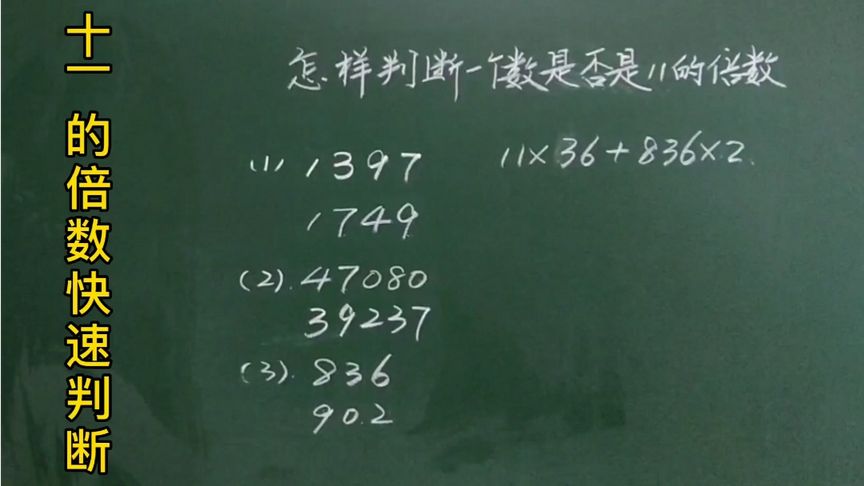 十一的倍数快速判断
怎样判断一个数是否是11的倍数
(1) 1397
1749
(2). 47080
39237
(3). 836
902
11×36+836×2.